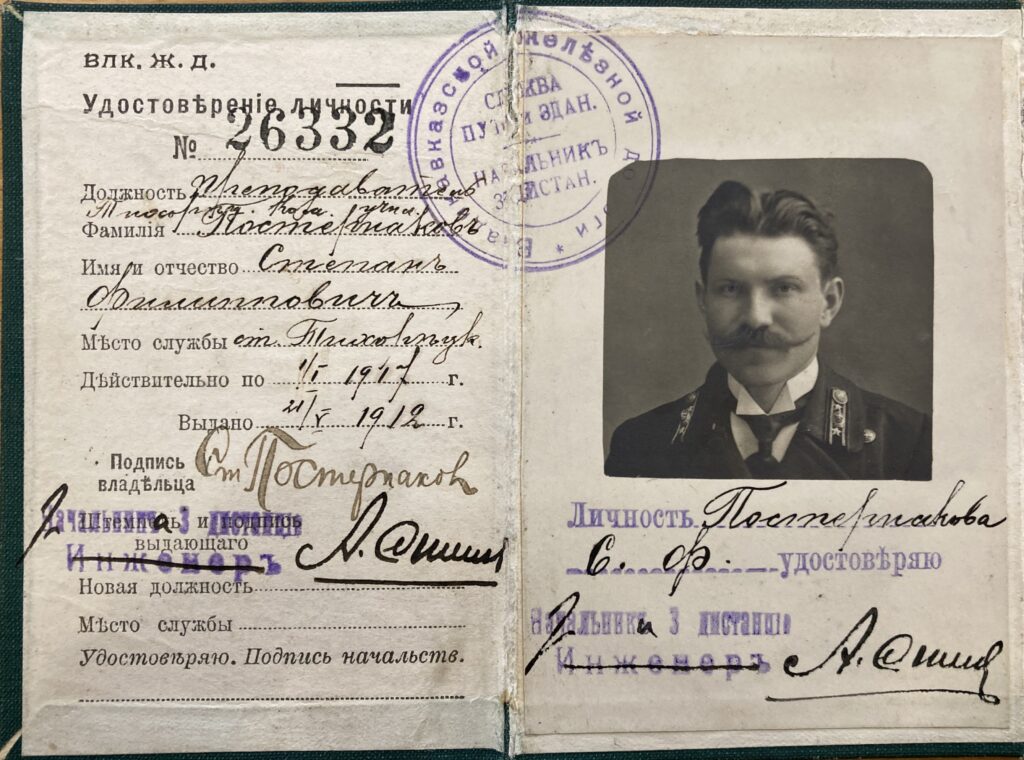 ВЛК. Ж. Д.
Удостовѣреніе личности
№ 26332
Должность Преподаватель
Фамилія Постернаковъ
Имя и отчество Степанъ
Филипповичъ
Мѣсто службы ст. Тихорѣцк.
Дѣйствительно по 1/I 1917 г.
Выдано 21/V 1912 г.
Подпись Ст Постернаков
владѣльца
Штемпель и подпись
Начальника 3 дистанціи
выдающаго
Инженеръ
Новая должность
Мѣсто службы
Удостовѣряю. Подпись начальств.
Владикавказской желѣзной дороги *
СЛУЖБА
ПУТИ И ЗДАН.
НАЧАЛЬНИКЪ
3 ДИСТАН.
Личность Постернакова
С. Ф. удостовѣряю
Начальника 3 дистанціи
Инженеръ